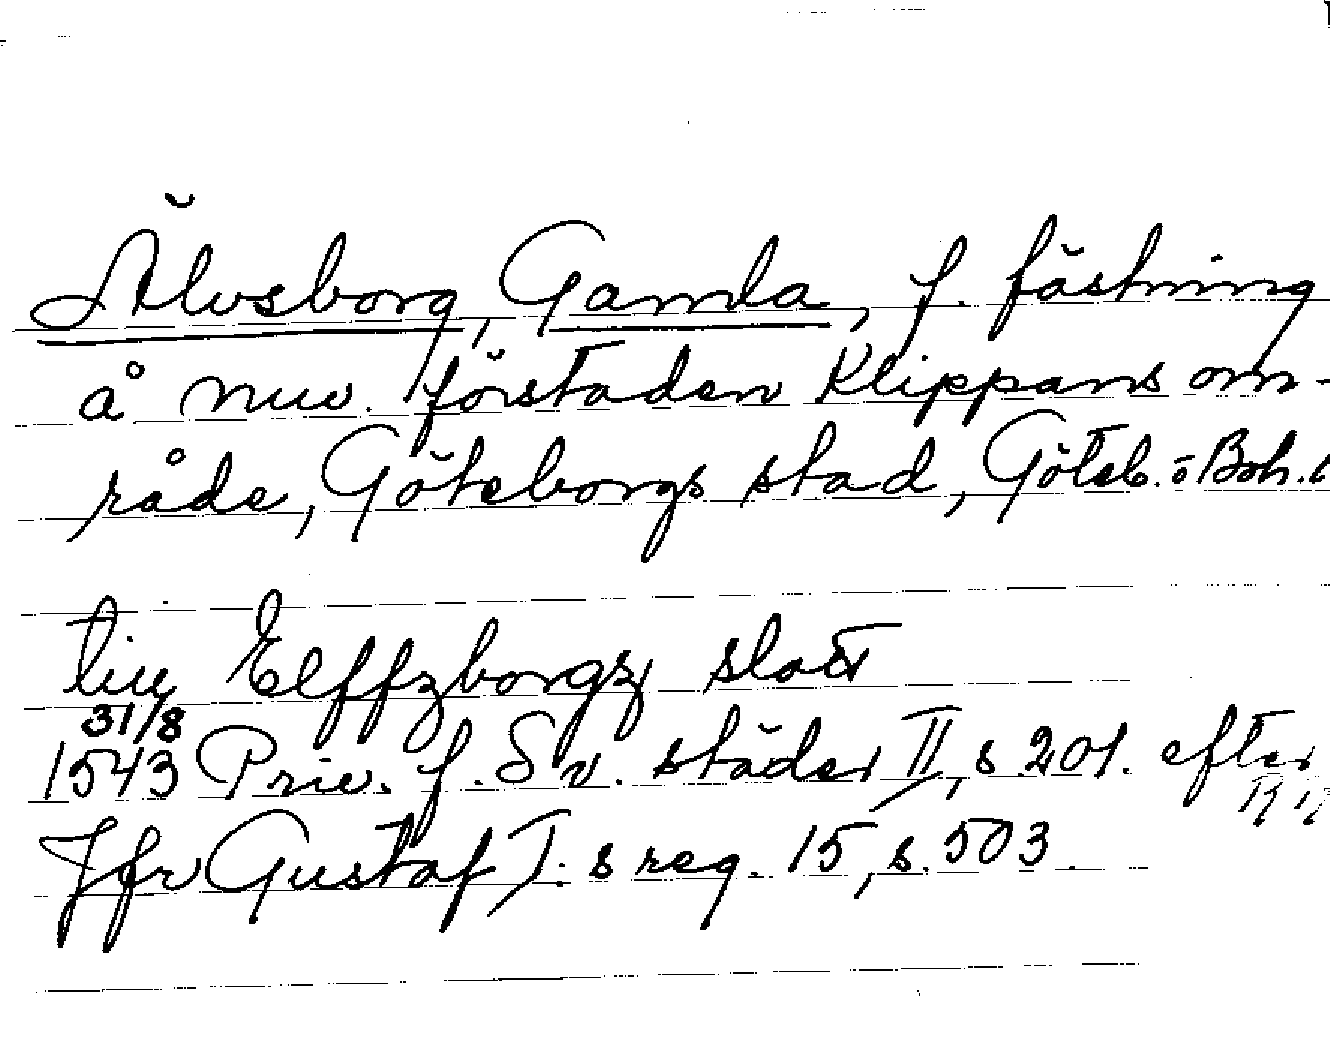 Älvsborg, Gamla, f. fästning
å nuv. förstaden Klippans om-
råde, Göteborgs stad, Göteb. o Boh. l
till Elffzborgz slott
31/8
1543 Priv. f. Sv. städer II, s 201. efter
RR
Jfr Gustaf I:s reg. 15, s. 503.